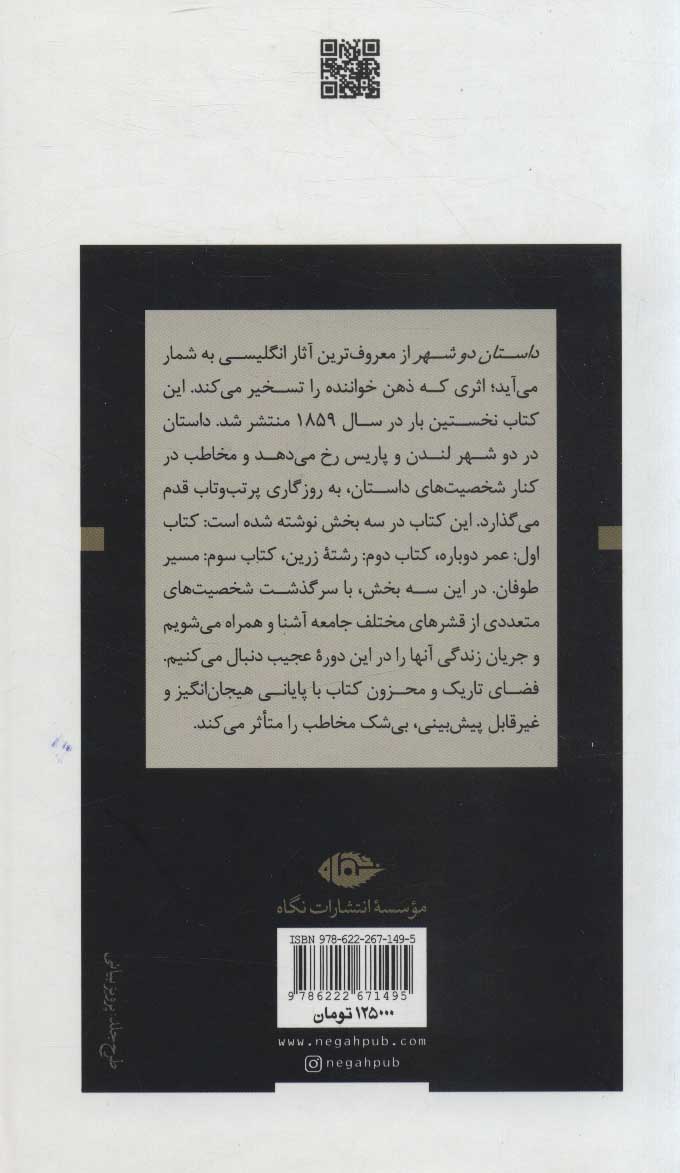 داستان دو شهر از معروف‌ترین آثار انگلیسی به شمار
می‌آید؛ اثری که ذهن خواننده را تسخیر می‌کند. این
کتاب نخستین بار در سال ۱۸۵۹ منتشر شد. داستان
در دو شهر لندن و پاریس رخ می‌دهد و مخاطب در
کنار شخصیت‌های داستان، به روزگاری پرتب‌وتاب قدم
می‌گذارد. این کتاب در سه بخش نوشته شده است: کتاب
اول: عمر دوباره، کتاب دوم: رشتهٔ زرین، کتاب سوم: مسیر
طوفان. در این سه بخش، با سرگذشت شخصیت‌های
متعددی از قشرهای مختلف جامعه آشنا و همراه می‌شویم
و جریان زندگی آنها را در این دورهٔ عجیب دنبال می‌کنیم.
فضای تاریک و محزون کتاب با پایانی هیجان‌انگیز و
غیرقابل پیش‌بینی، بی‌شک مخاطب را متأثر می‌کند.
نگاه
مؤسسهٔ انتشارات نگاه
ISBN 978-622-267-149-5
9 786222 671495
۱۲۵۰۰۰ تومان
www.negahpub.com
negahpub
طرح جلد: پرویز بیانی